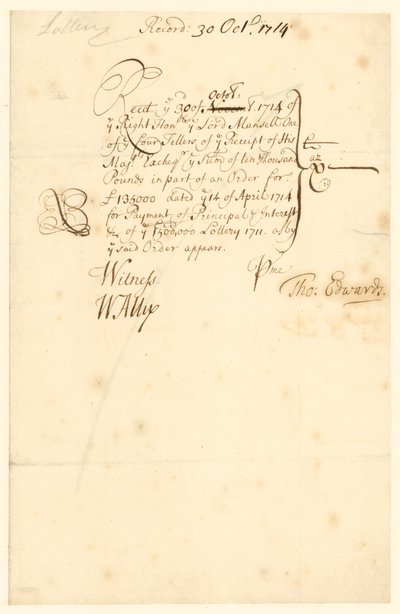 Lottery
Record: 30 Octr. 1714
Octr.
Recd ye 30 of Novem 1714 of
ye Right Honble ye Lord Mansell One
of ye four Tellers of ye Receipt of His
Majts Excheqr ye Sum of ten Thousand
Pounds in part of an Order for
£135000 dated ye 14 of April 1714
for Payment of Principal & Interest
& of ye 1500,000 Lottery 1711. as by
ye said Order appears.
Witness.
P me
Tho: Edwards.